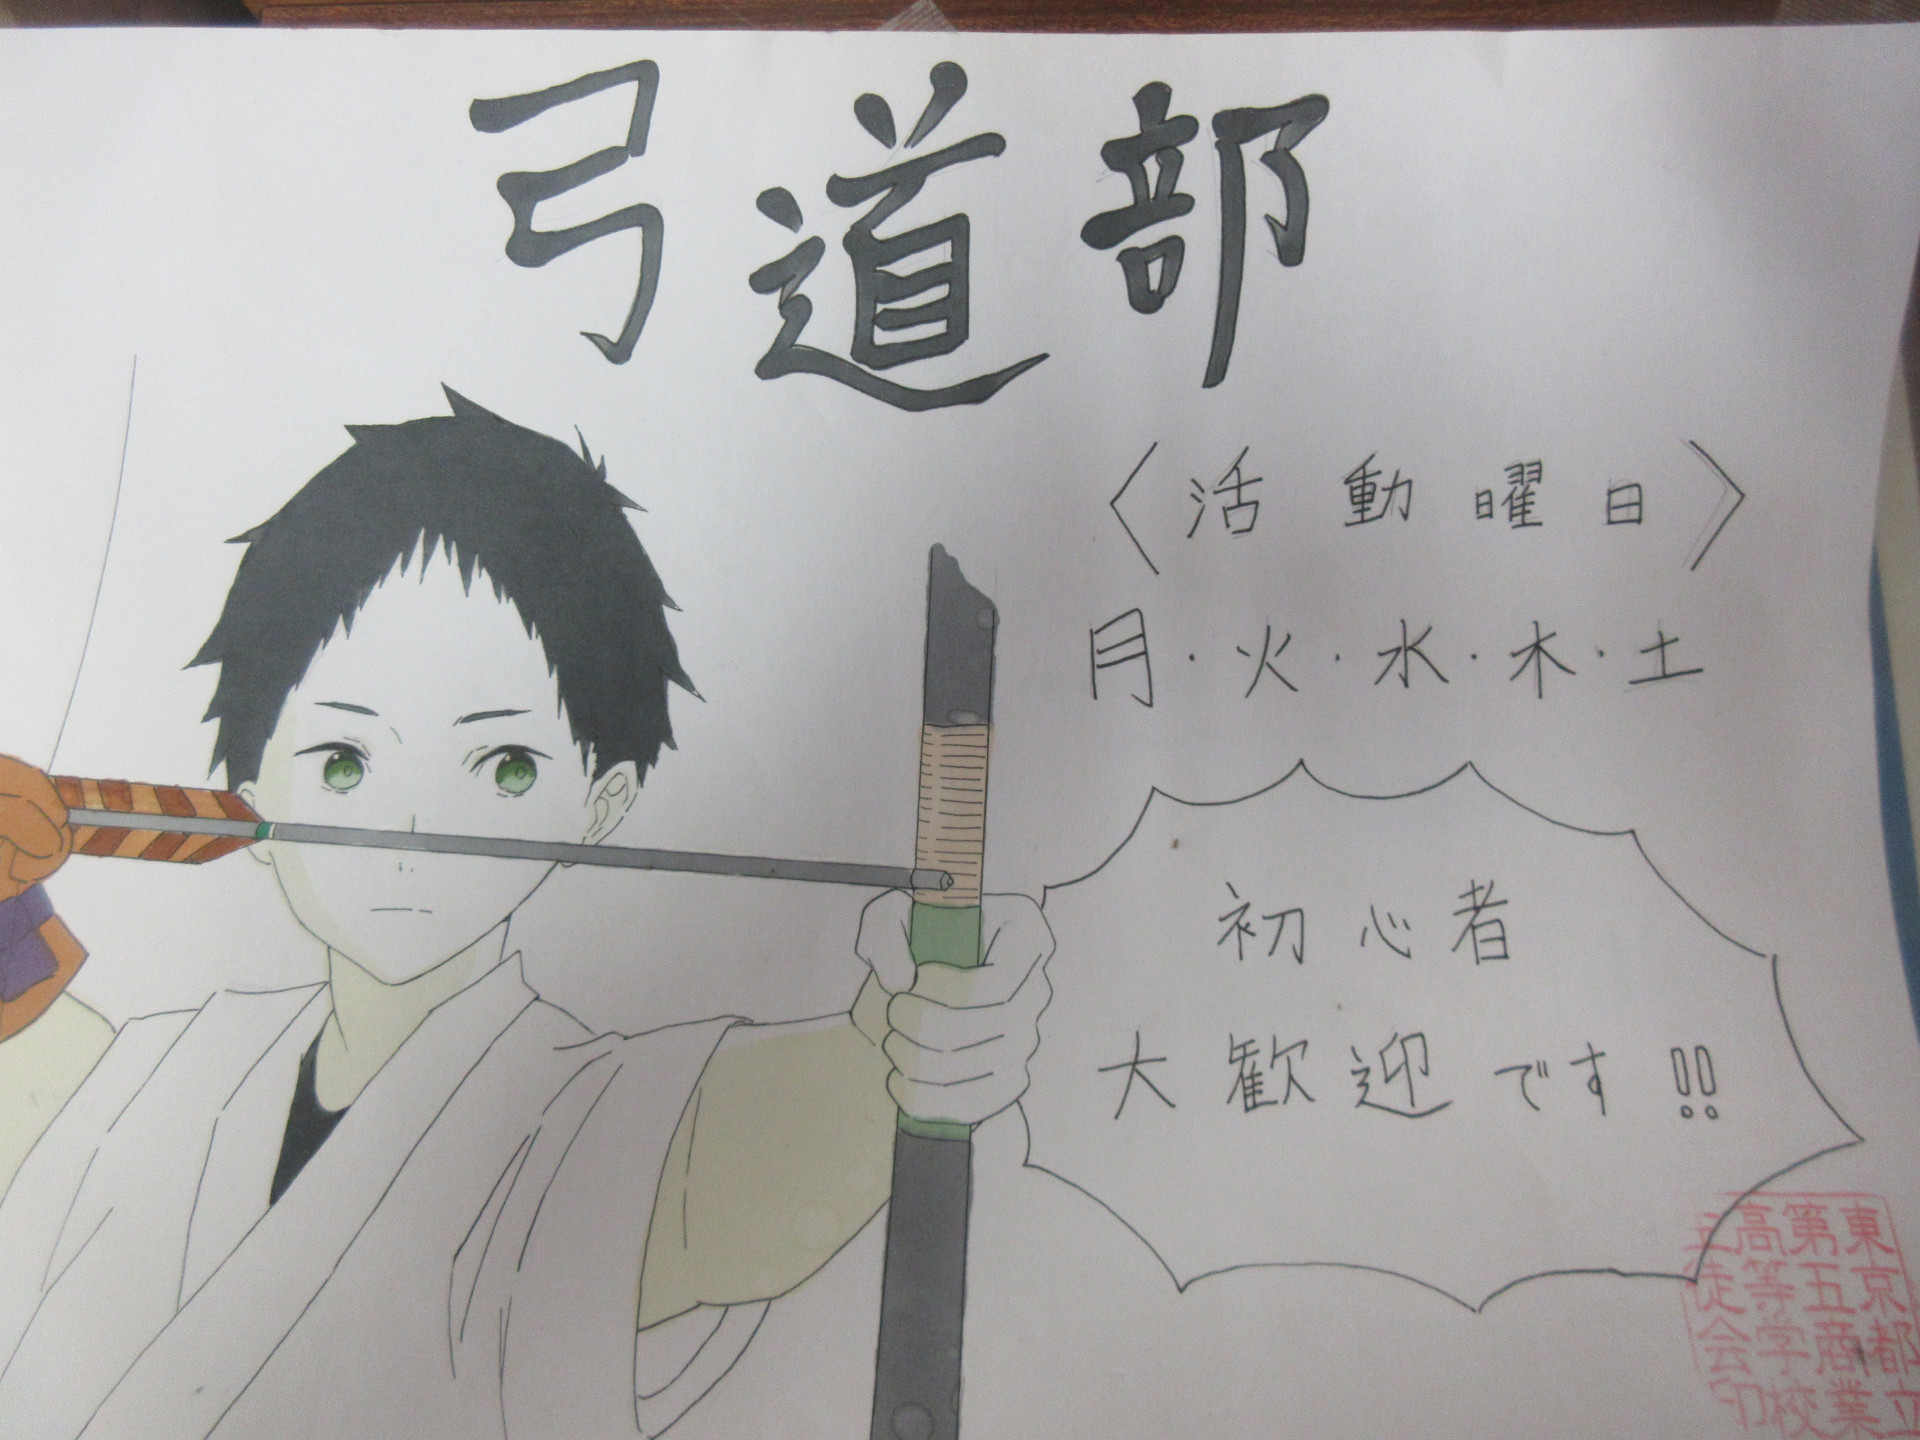 弓道部
〈活動曜日〉
月・火・水・木・土
初心者
大歓迎です!!
東京都立
第五商業
高等学校
生徒会印